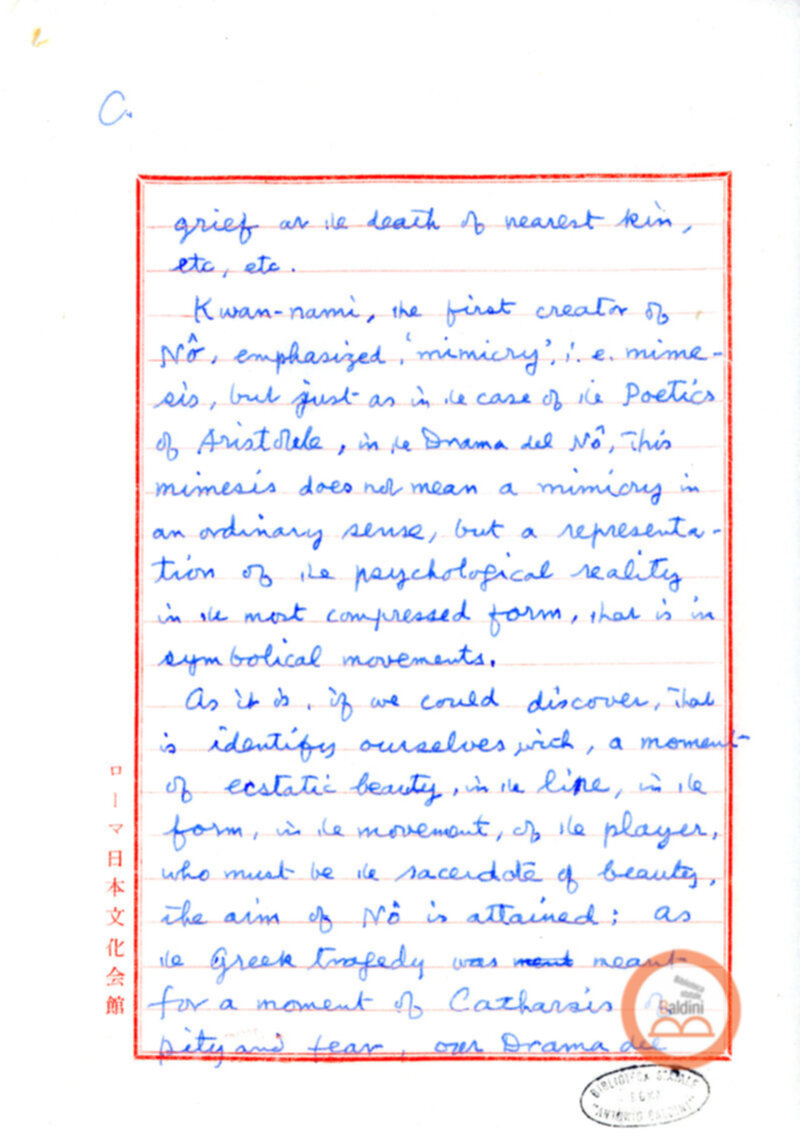 C.
grief at the death of nearest kin,
etc, etc.
Kwan-nami, the first creator of
Nô, emphasized, 'mimicry', i.e. mime-
sis, but just as in the case of the Poetics
of Aristotele, in the Drama del Nô, this
mimesis does not mean a mimicry in
an ordinary sense, but a representa-
tion of the psychological reality
in the most compressed form, that is in
symbolical movements.
As it is, if we could discover, that
is identify ourselves with, a moment
of ecstatic beauty, in the line, in the
form, in the movement, of the player,
who must be the sacerdote of beauty,
the aim of Nô is attained: as
the Greek tragedy was meant
for a moment of Catharsis of
pity and fear, our Drama del
ローマ日本文化会館
Biblioteca
statale
Baldini
BIBLIOTECA STATALE
ROMA
"ANTONIO BALDINI"